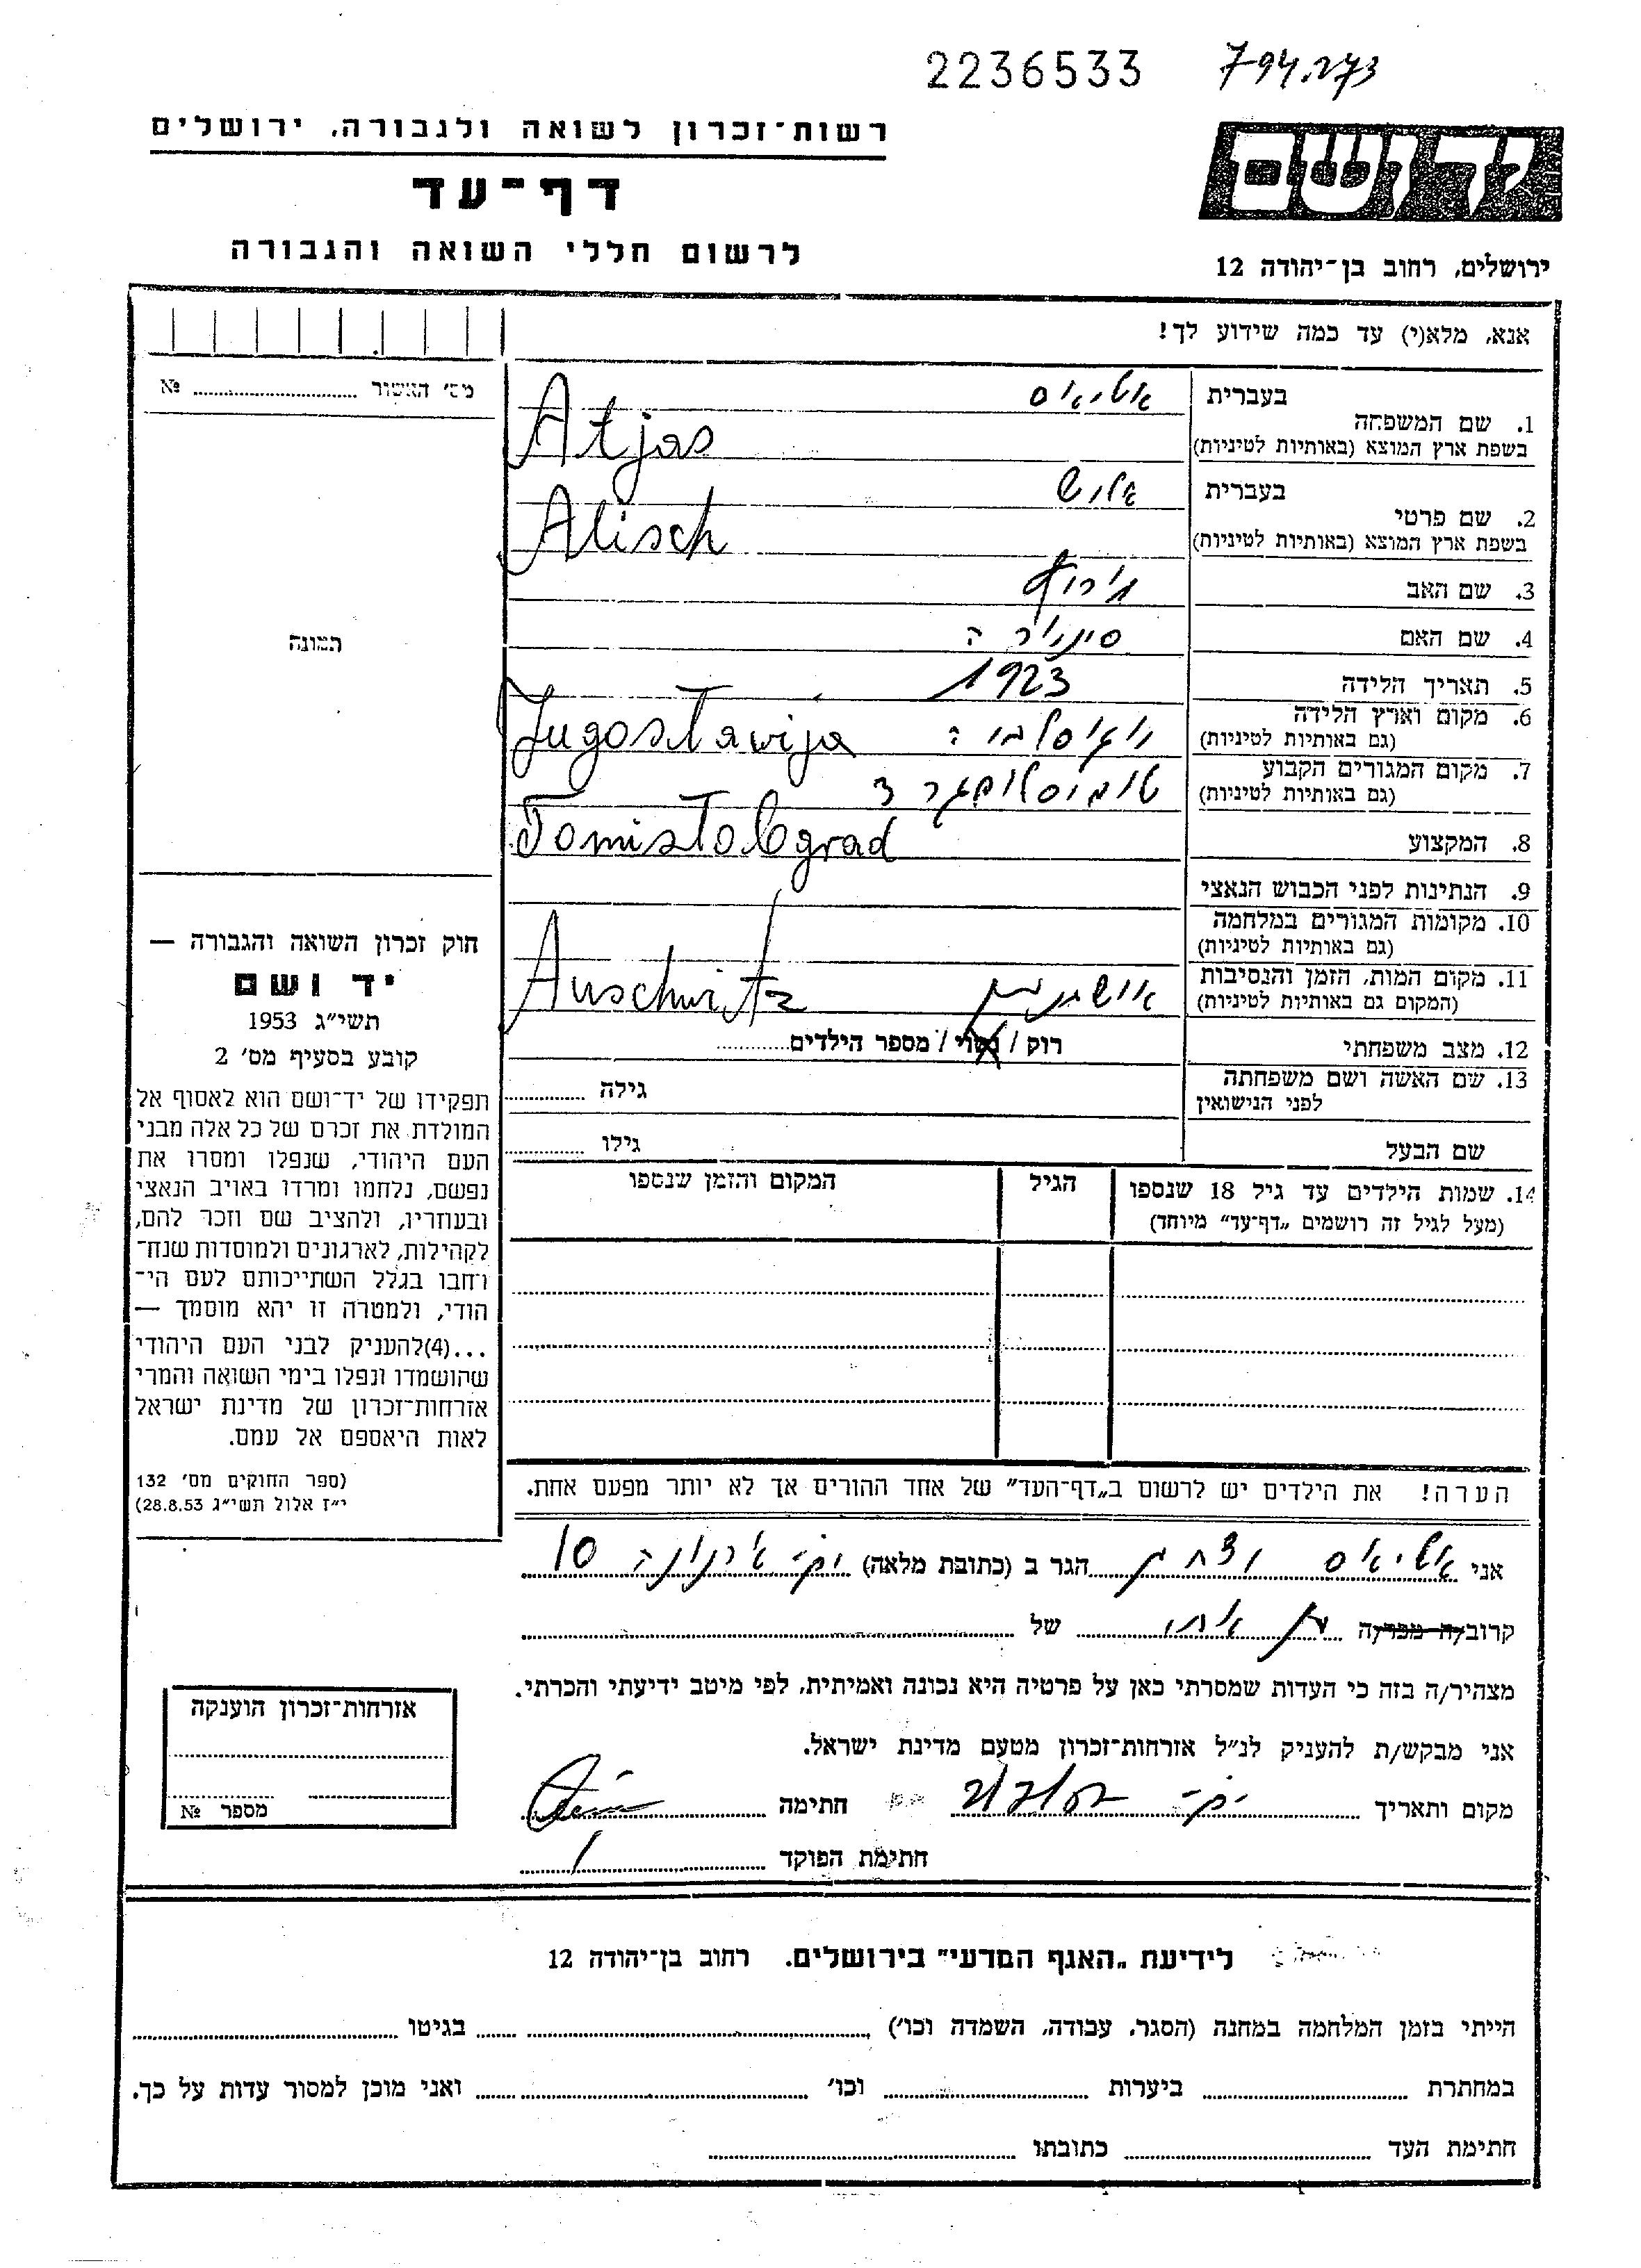 2236533 794.273
רשות־זכרון לשואה ולגבורה, ירושלים
יד ושם
דף־עד
לרשום חללי השואה והגבורה
ירושלים, רחוב בן־יהודה 12
אנא, מלא(י) עד כמה שידוע לך!
מס' האשור № 
1. שם המשפחה
בעברית אטיאס
בשפת ארץ המוצא (באותיות לטיניות) Atjas
2. שם פרטי
בעברית אליש
בשפת ארץ המוצא (באותיות לטיניות) Alisch
3. שם האב
4. שם האם
5. תאריך הלידה 1923
6. מקום וארץ הלידה
(גם באותיות לטיניות) Jugoslawija
7. מקום המגורים הקבוע
(גם באותיות לטיניות)
Tomislobgrad
8. המקצוע
9. הנתינות לפני הכבוש הנאצי
10. מקומות המגורים במלחמה
(גם באותיות לטיניות)
11. מקום המות, הזמן והנסיבות
(המקום גם באותיות לטיניות) אושוויץ Auschwitz
12. מצב משפחתי רוק / נשוי / מספר הילדים
13. שם האשה ושם משפחתה גילה
לפני הנישואין
שם הבעל גילו
14. שמות הילדים עד גיל 18 שנספו הגיל המקום והזמן שנספו
(מעל לגיל זה רושמים „דף־עד" מיוחד)
הערה! את הילדים יש לרשום ב„דף־העד" של אחד ההורים אך לא יותר מפעם אחת.
תמונה
חוק זכרון השואה והגבורה —
יד ושם
תשי"ג 1953
קובע בסעיף מס' 2
תפקידו של יד־ושם הוא לאסוף אל
המולדת את זכרם של כל אלה מבני
העם היהודי, שנפלו ומסרו את
נפשם, נלחמו ומרדו באויב הנאצי
ובעוזריו, ולהציב שם וזכר להם,
לקהילות, לארגונים ולמוסדות שנח־
רחבו בגלל השתייכותם לעם הי־
הודי, ולמטרה זו יהא מוסמך —
...(4)להעניק לבני העם היהודי
שהושמדו ונפלו בימי השואה והמרי
אזרחות־זכרון של מדינת ישראל
לאות היאספם אל עמם.
(ספר החוקים מס' 132
י"ז אלול תשי"ג 28.8.53)
אני אטיאס הגר ב (כתובת מלאה) 10
קרוב/ה מכר/ה של
מצהיר/ה בזה כי העדות שמסרתי כאן על פרטיה היא נכונה ואמיתית, לפי מיטב ידיעתי והכרתי.
אני מבקש/ת להעניק לנ"ל אזרחות־זכרון מטעם מדינת ישראל.
מקום ותאריך חתימה
חתימת הפוקד
אזרחות־זכרון הוענקה
מספר №
לידיעת „האגף המדעי" בירושלים. רחוב בן־יהודה 12
הייתי בזמן המלחמה במחנה (הסגר, עבודה, השמדה וכו') בגיטו
במחתרת ביערות וכו' ואני מוכן למסור עדות על כך.
חתימת העד כתובתו